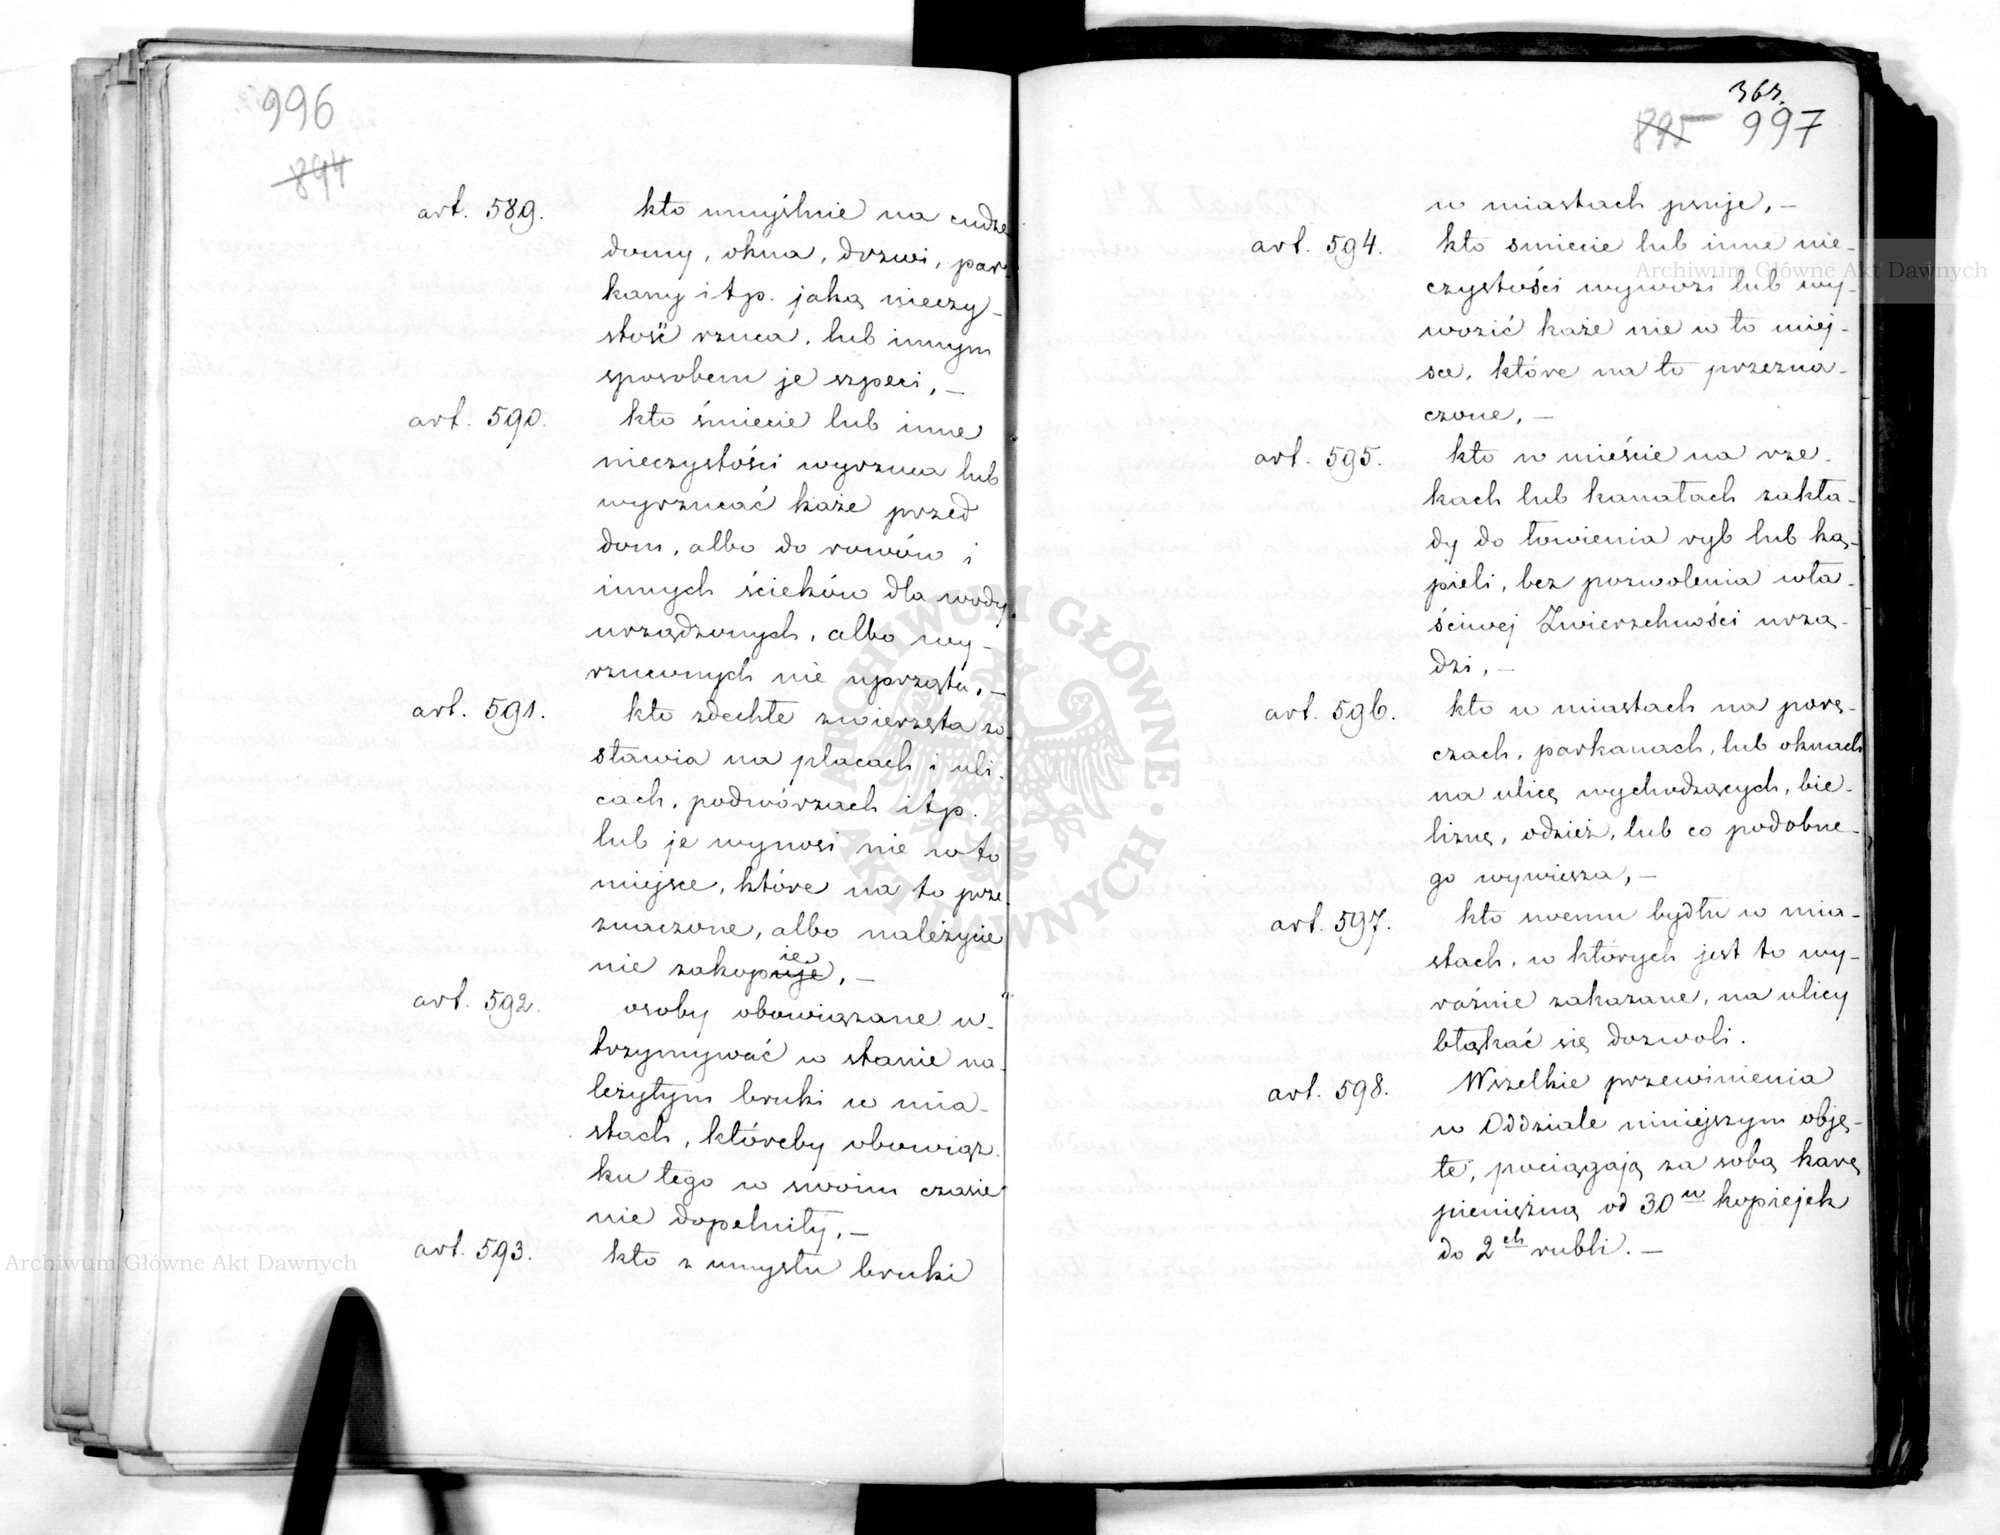 996
894
art. 589. kto umyślnie na cudze
domy, okna, drzwi, par-
kany itp. jaką nieczy-
stość rzuca, lub innym
sposobem je szpeci, —
art. 590. kto śmiecie lub inne
nieczystości wyrzuca lub
wyrzucać każe przed
dom, albo do rowów i
innych ścieków dla wody
urządzonych, albo wy-
rzuconych nie uprząta, —
art. 591. kto zdechłe zwierzęta zo-
stawia na placach i uli-
cach, podwórzach itp.
lub je wynosi nie w to
miejsce, które na to prze-
znaczone, albo należycie
ie
nie zakopuje, —
art. 592. osoby obowiązane u-
trzymywać w stanie na-
leżytym bruki w mia-
stach, któreby obowiąz-
ku tego w swoim czasie
nie dopełniły, —
art. 593. kto z umysłu bruki
363.
895 997
w miastach psuje, —
art. 594. kto smiecie lub inne nie-
czystości wywozi lub wy-
wozić każe nie w to miej-
sce, które na to przezna-
czone, —
art. 595. kto w mieście na rze-
kach lub kanałach zakła-
dy do łowienia ryb lub ką-
pieli, bez pozwolenia wła-
ściwej Zwierzchności urzą-
dzi, —
art. 596. kto w miastach na porę-
czach, parkanach, lub oknach
na ulicę wychodzących, bie-
liznę, odzież, lub co podobne-
go wywiesza, —
art. 597. kto swemu bydłu w mia-
stach, w których jest to wy-
raźnie zakazane, na ulicy
błąkać się dozwoli.
art. 598. Wszelkie przewinienia
w Oddziale niniejszym obję-
te, pociągają za sobą karę
pieniężną od 30u kopiejek
do 2ch rubli. —
Archiwum Główne Akt Dawnych
ARCHIWUM GŁÓWNE AKT DAWNYCH
Archiwum Główne Akt Dawnych